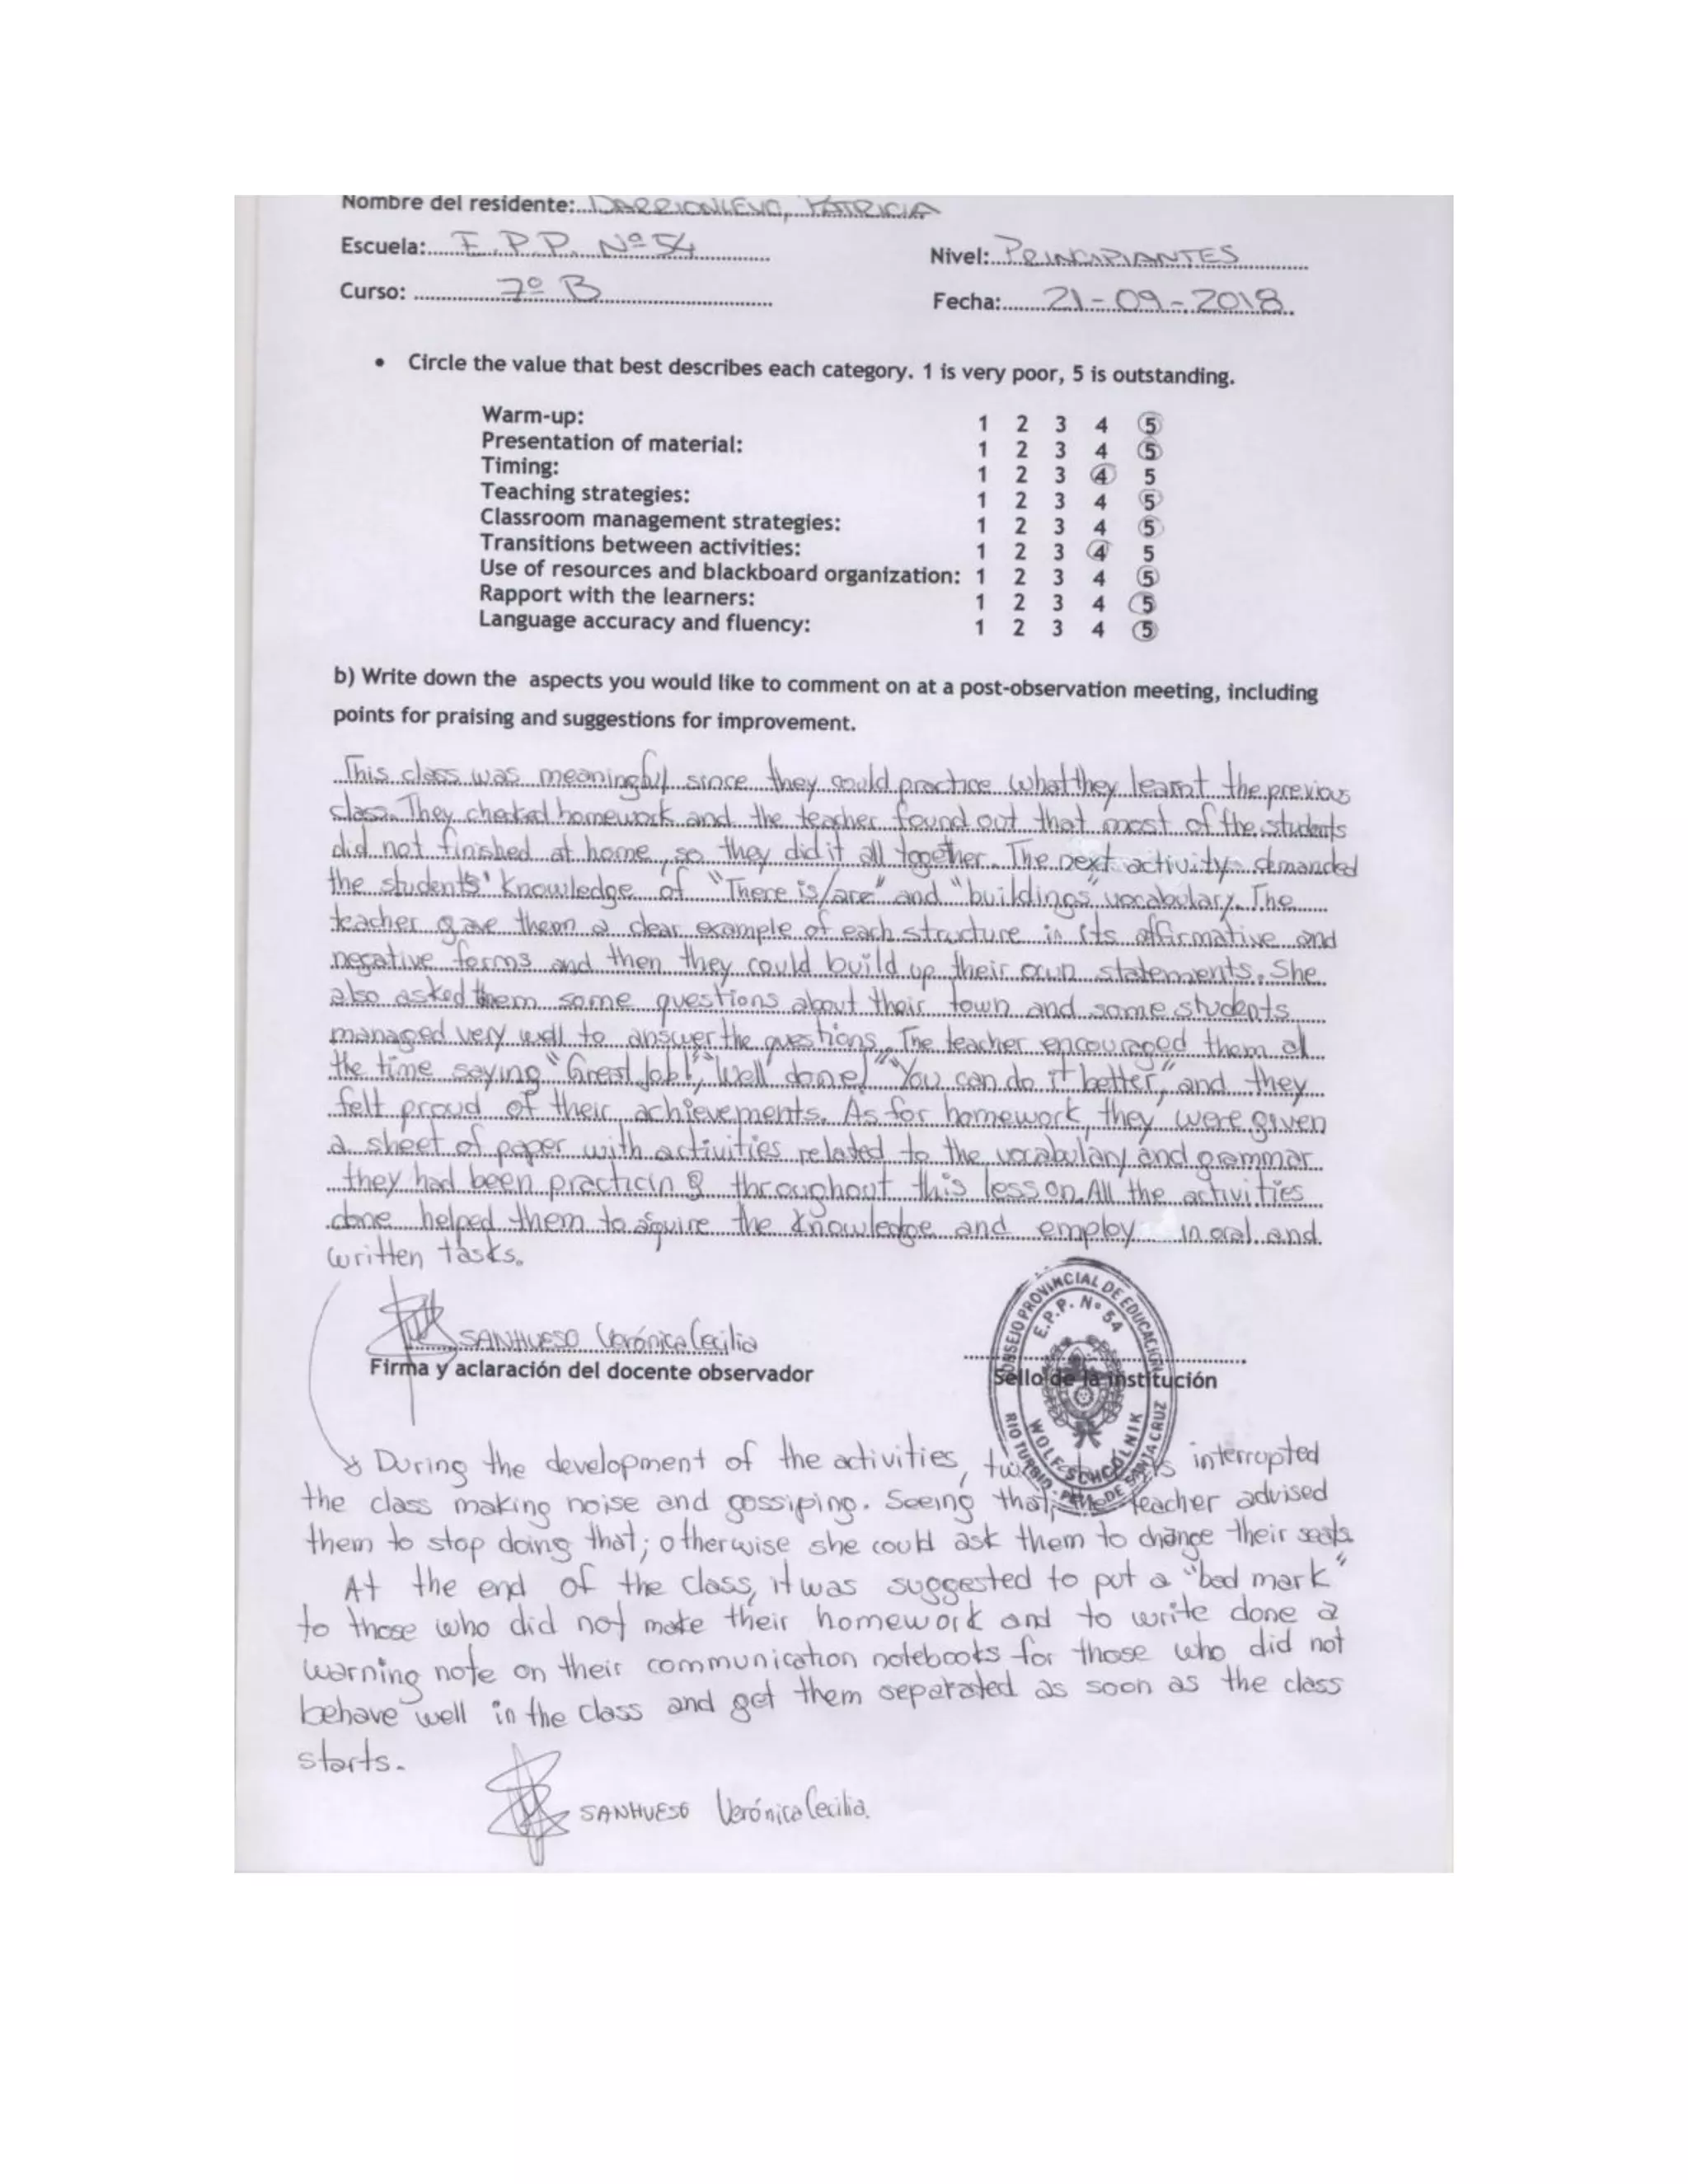 Nombre del residente: PATRICIA
Escuela: E.P.P. Nº 54
Nivel: PRINCIPIANTES
Curso: 7º B
Fecha: 21-09-2018
• Circle the value that best describes each category. 1 is very poor, 5 is outstanding.
Warm-up: 1 2 3 4 5
Presentation of material: 1 2 3 4 5
Timing: 1 2 3 4 5
Teaching strategies: 1 2 3 4 5
Classroom management strategies: 1 2 3 4 5
Transitions between activities: 1 2 3 4 5
Use of resources and blackboard organization: 1 2 3 4 5
Rapport with the learners: 1 2 3 4 5
Language accuracy and fluency: 1 2 3 4 5
b) Write down the aspects you would like to comment on at a post-observation meeting, including
points for praising and suggestions for improvement.
This class was meaningful since they could practice what they learnt the previous
class. They checked homework and the teacher found out that most of the students
did not finished at home, so they did it all together. The next activity demanded
the students' knowledge of "There is/are" and "buildings" vocabulary. The
teacher gave them a clear example of each structure in its affirmative and
negative forms and then they could build up their own statements. She
also asked them some questions about their town and some students
managed very well to answer the questions. The teacher encouraged them al
the time saying "Great Job!", "Well done!" "You can do it better," and they
felt proud of their achievements. As for homework, they were given
a sheet of paper with activities related to the vocabulary and grammar
they had been practicing throughout this lesson. All the activities
done helped them to aquire the knowledge and employ in oral and
written tasks.
SANHUESO Verónica Cecilia
Firma y aclaración del docente observador
Sello de la institución
CONSEJO PROVINCIAL DE EDUCACIÓN
E.P.P. Nº 54
WOLF SCHCOLNIK
RIO TURBIO - PCIA. DE SANTA CRUZ
During the development of the activities, interrupted
the class making noise and gossiping. Seeing that, the teacher advised
them to stop doing that; otherwise she could ask them to change their seats.
At the end of the class, it was suggested to put a "bad mark"
to those who did not make their homework and to write done a
warning note on their communication notebooks for those who did not
behave well in the class and get them separated as soon as the class
starts.
SANHUESO Verónica Cecilia.